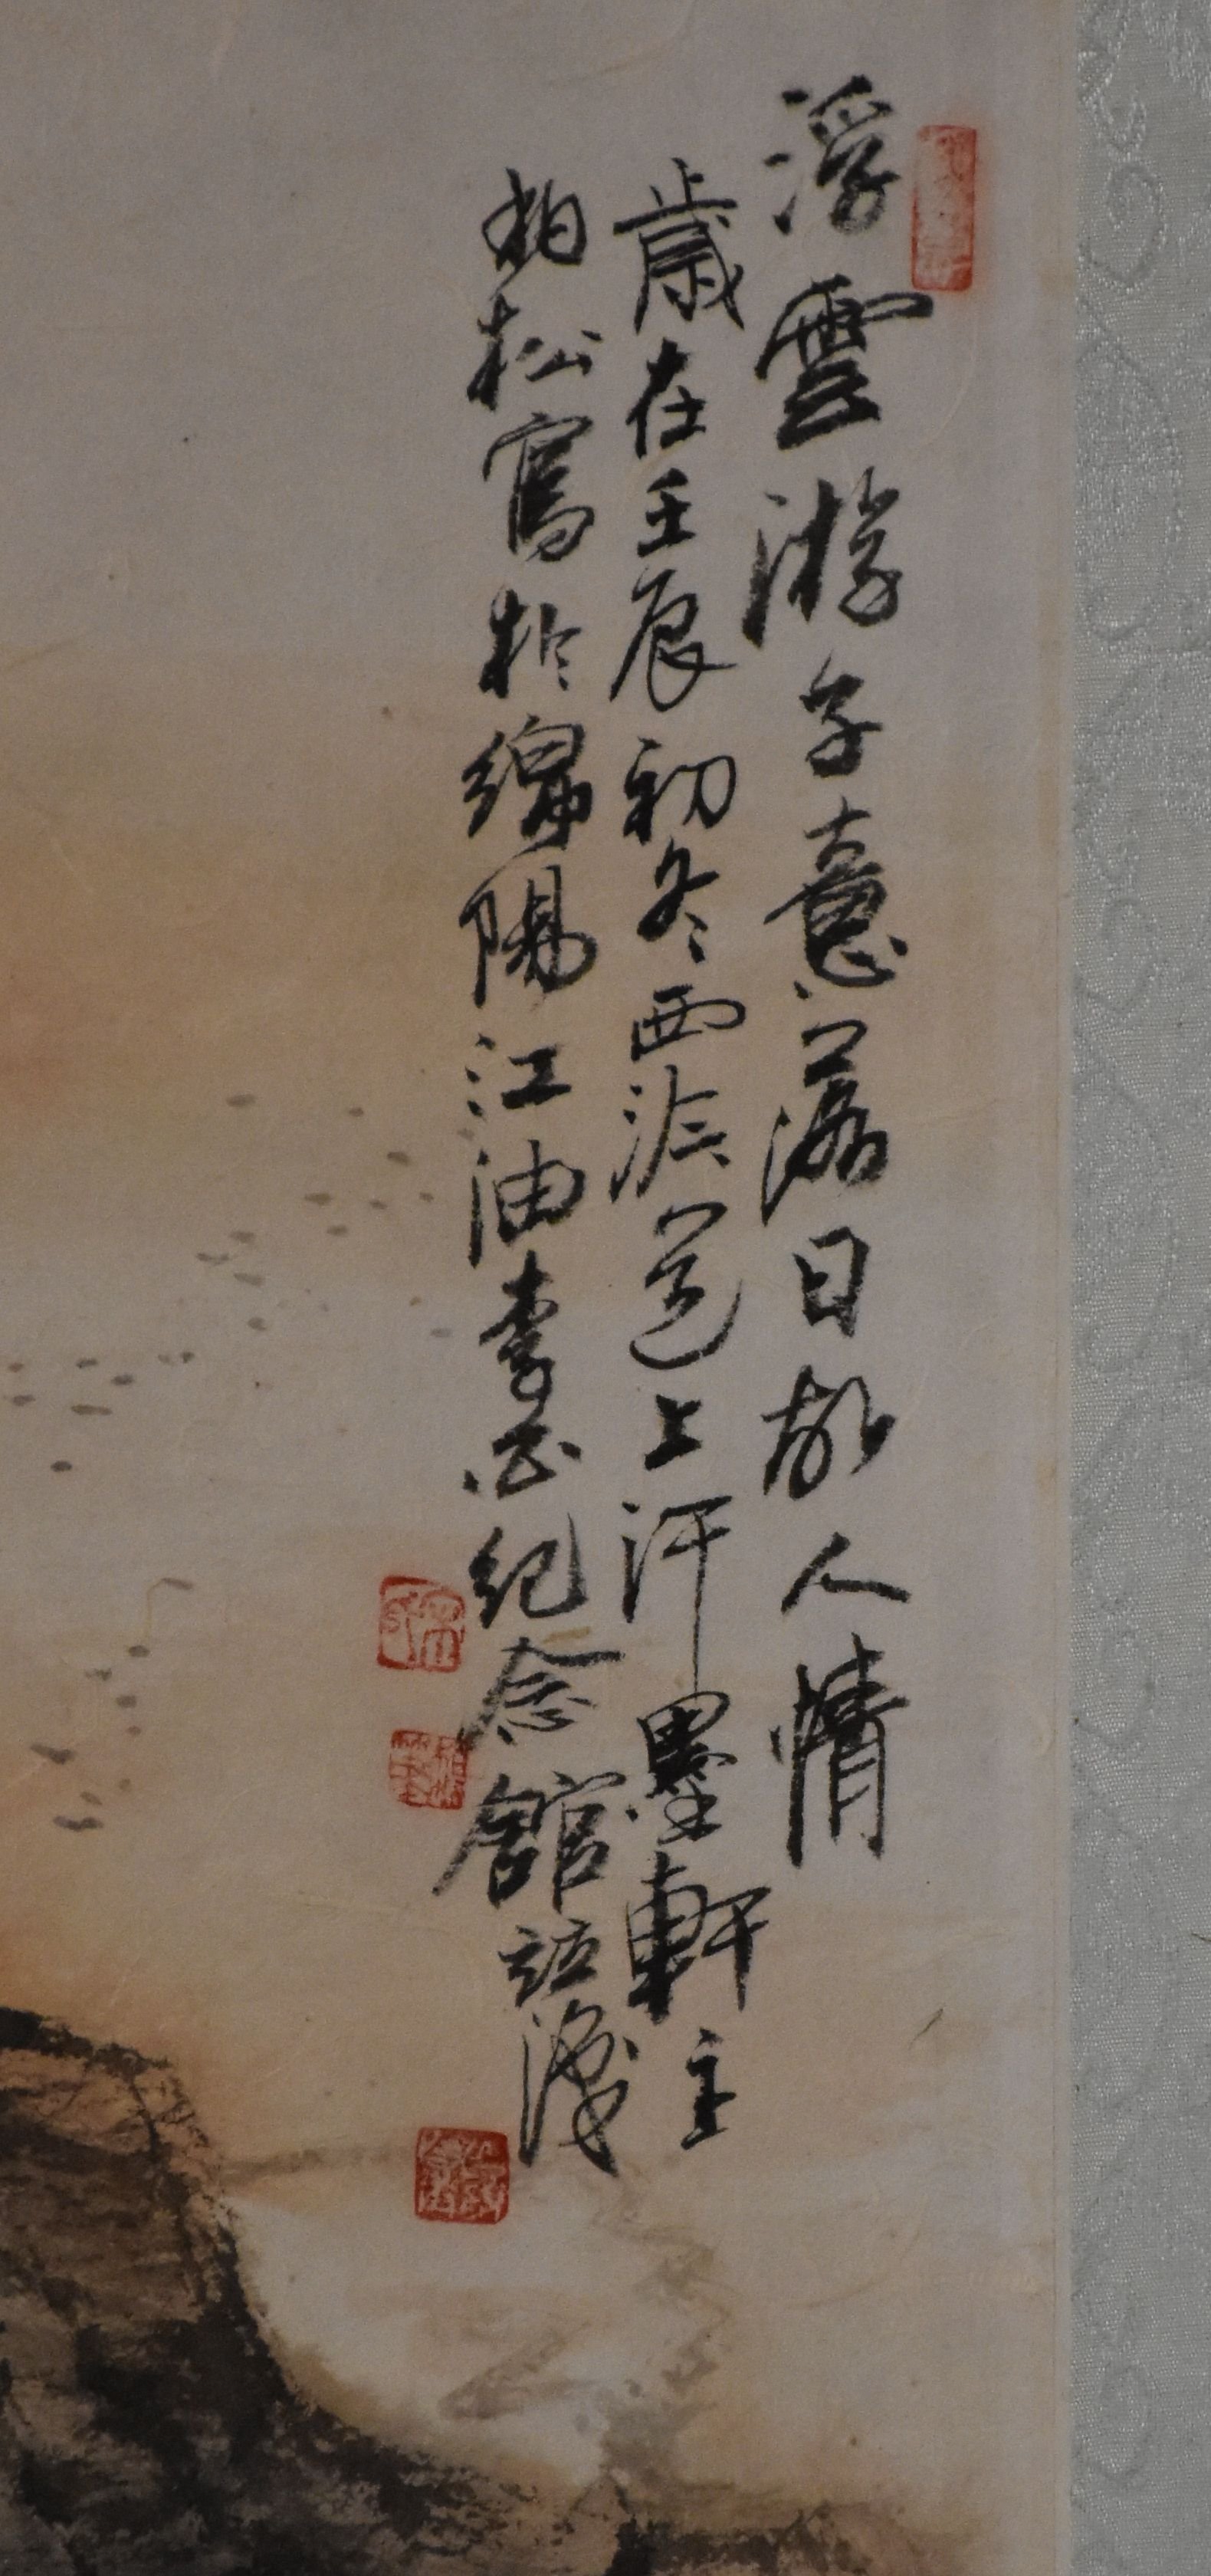 浮雲游子意落日故人情
歲在壬辰初冬西涂道上汗墨軒主
柏松寫於綿陽江油李白紀念館